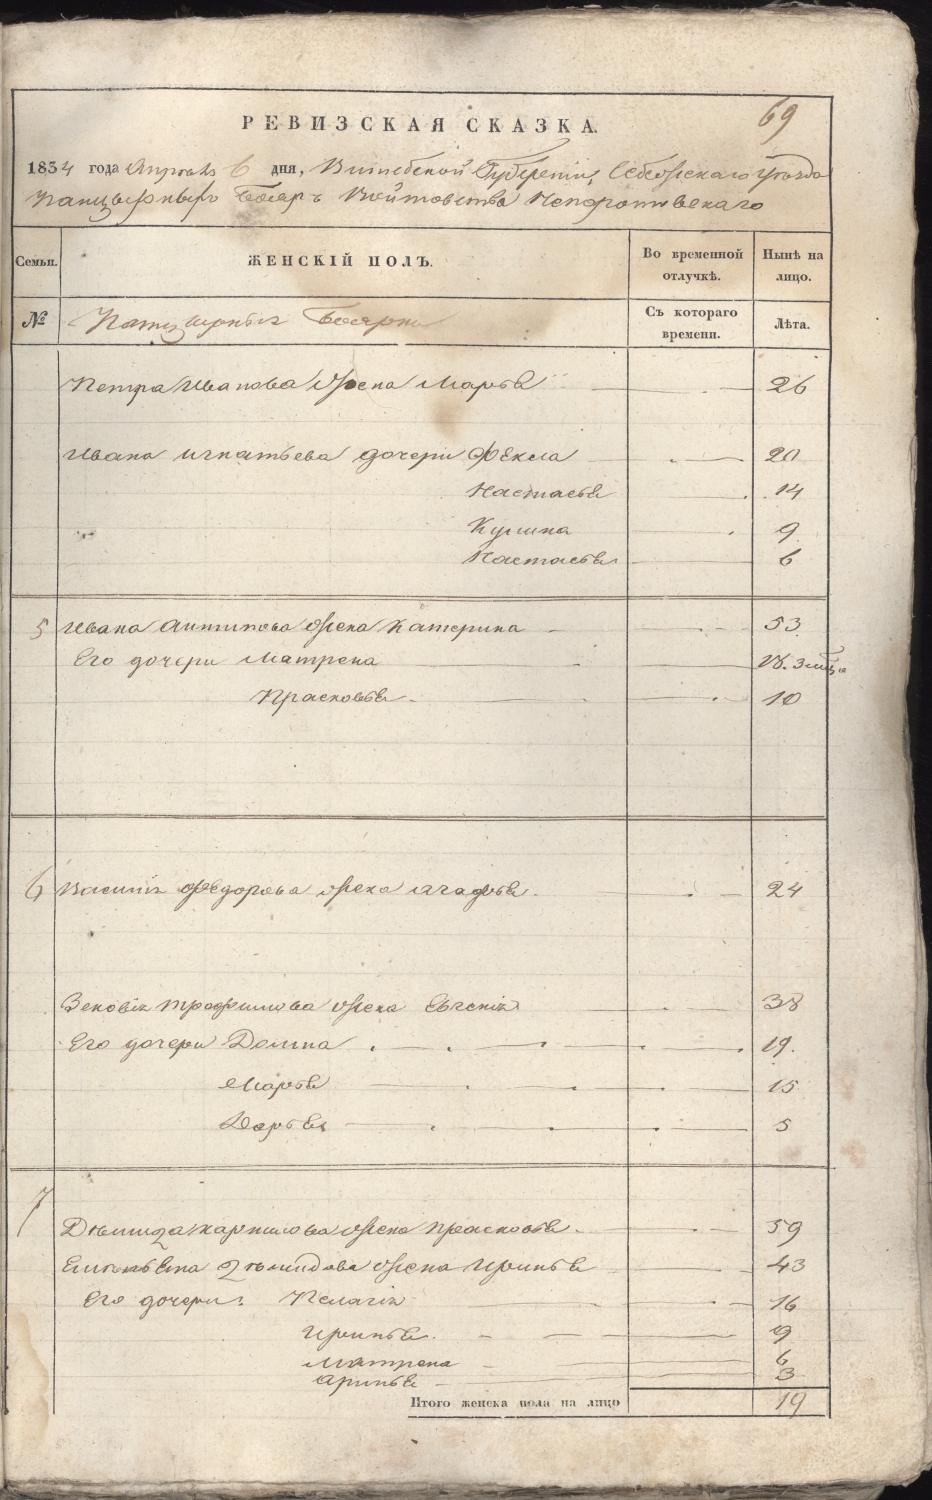 69
РЕВИЗСКАЯ СКАЗКА.
1834 года Апреля 6 дня, Витебской Губерении, Себежскаго уезда
Панцырныхъ Бояръ Войтовства Непоротовскаго
Семьи. ЖЕНСКІЙ ПОЛЪ. Во временной отлучкѣ. Нынѣ на лицо.
№ Панцырныя Боярки Съ котораго времени. Лѣта.
Петра Иванова жена Марья 26
Ивана Игнатьева дочери Фекла 20
Настасья 14
Кулина 9
Настасья 6
5 Ивана Антипова жена Катерина 53
Его дочери Матрена
Прасковья 10
6 Василія Федорова жена Агафья 24
Зеновія Трофимова жена Евгенія 38
Его дочери Домна 19.
Марья 15
Дарья 5
7
Демида Карпилова жена Прасковья 59
Емельяна Демидова жена Иринья 43
Его дочери: Пелагія 16
Иринья 9
Матрена 6
Аринья 3
Итого женска пола на лицо 19